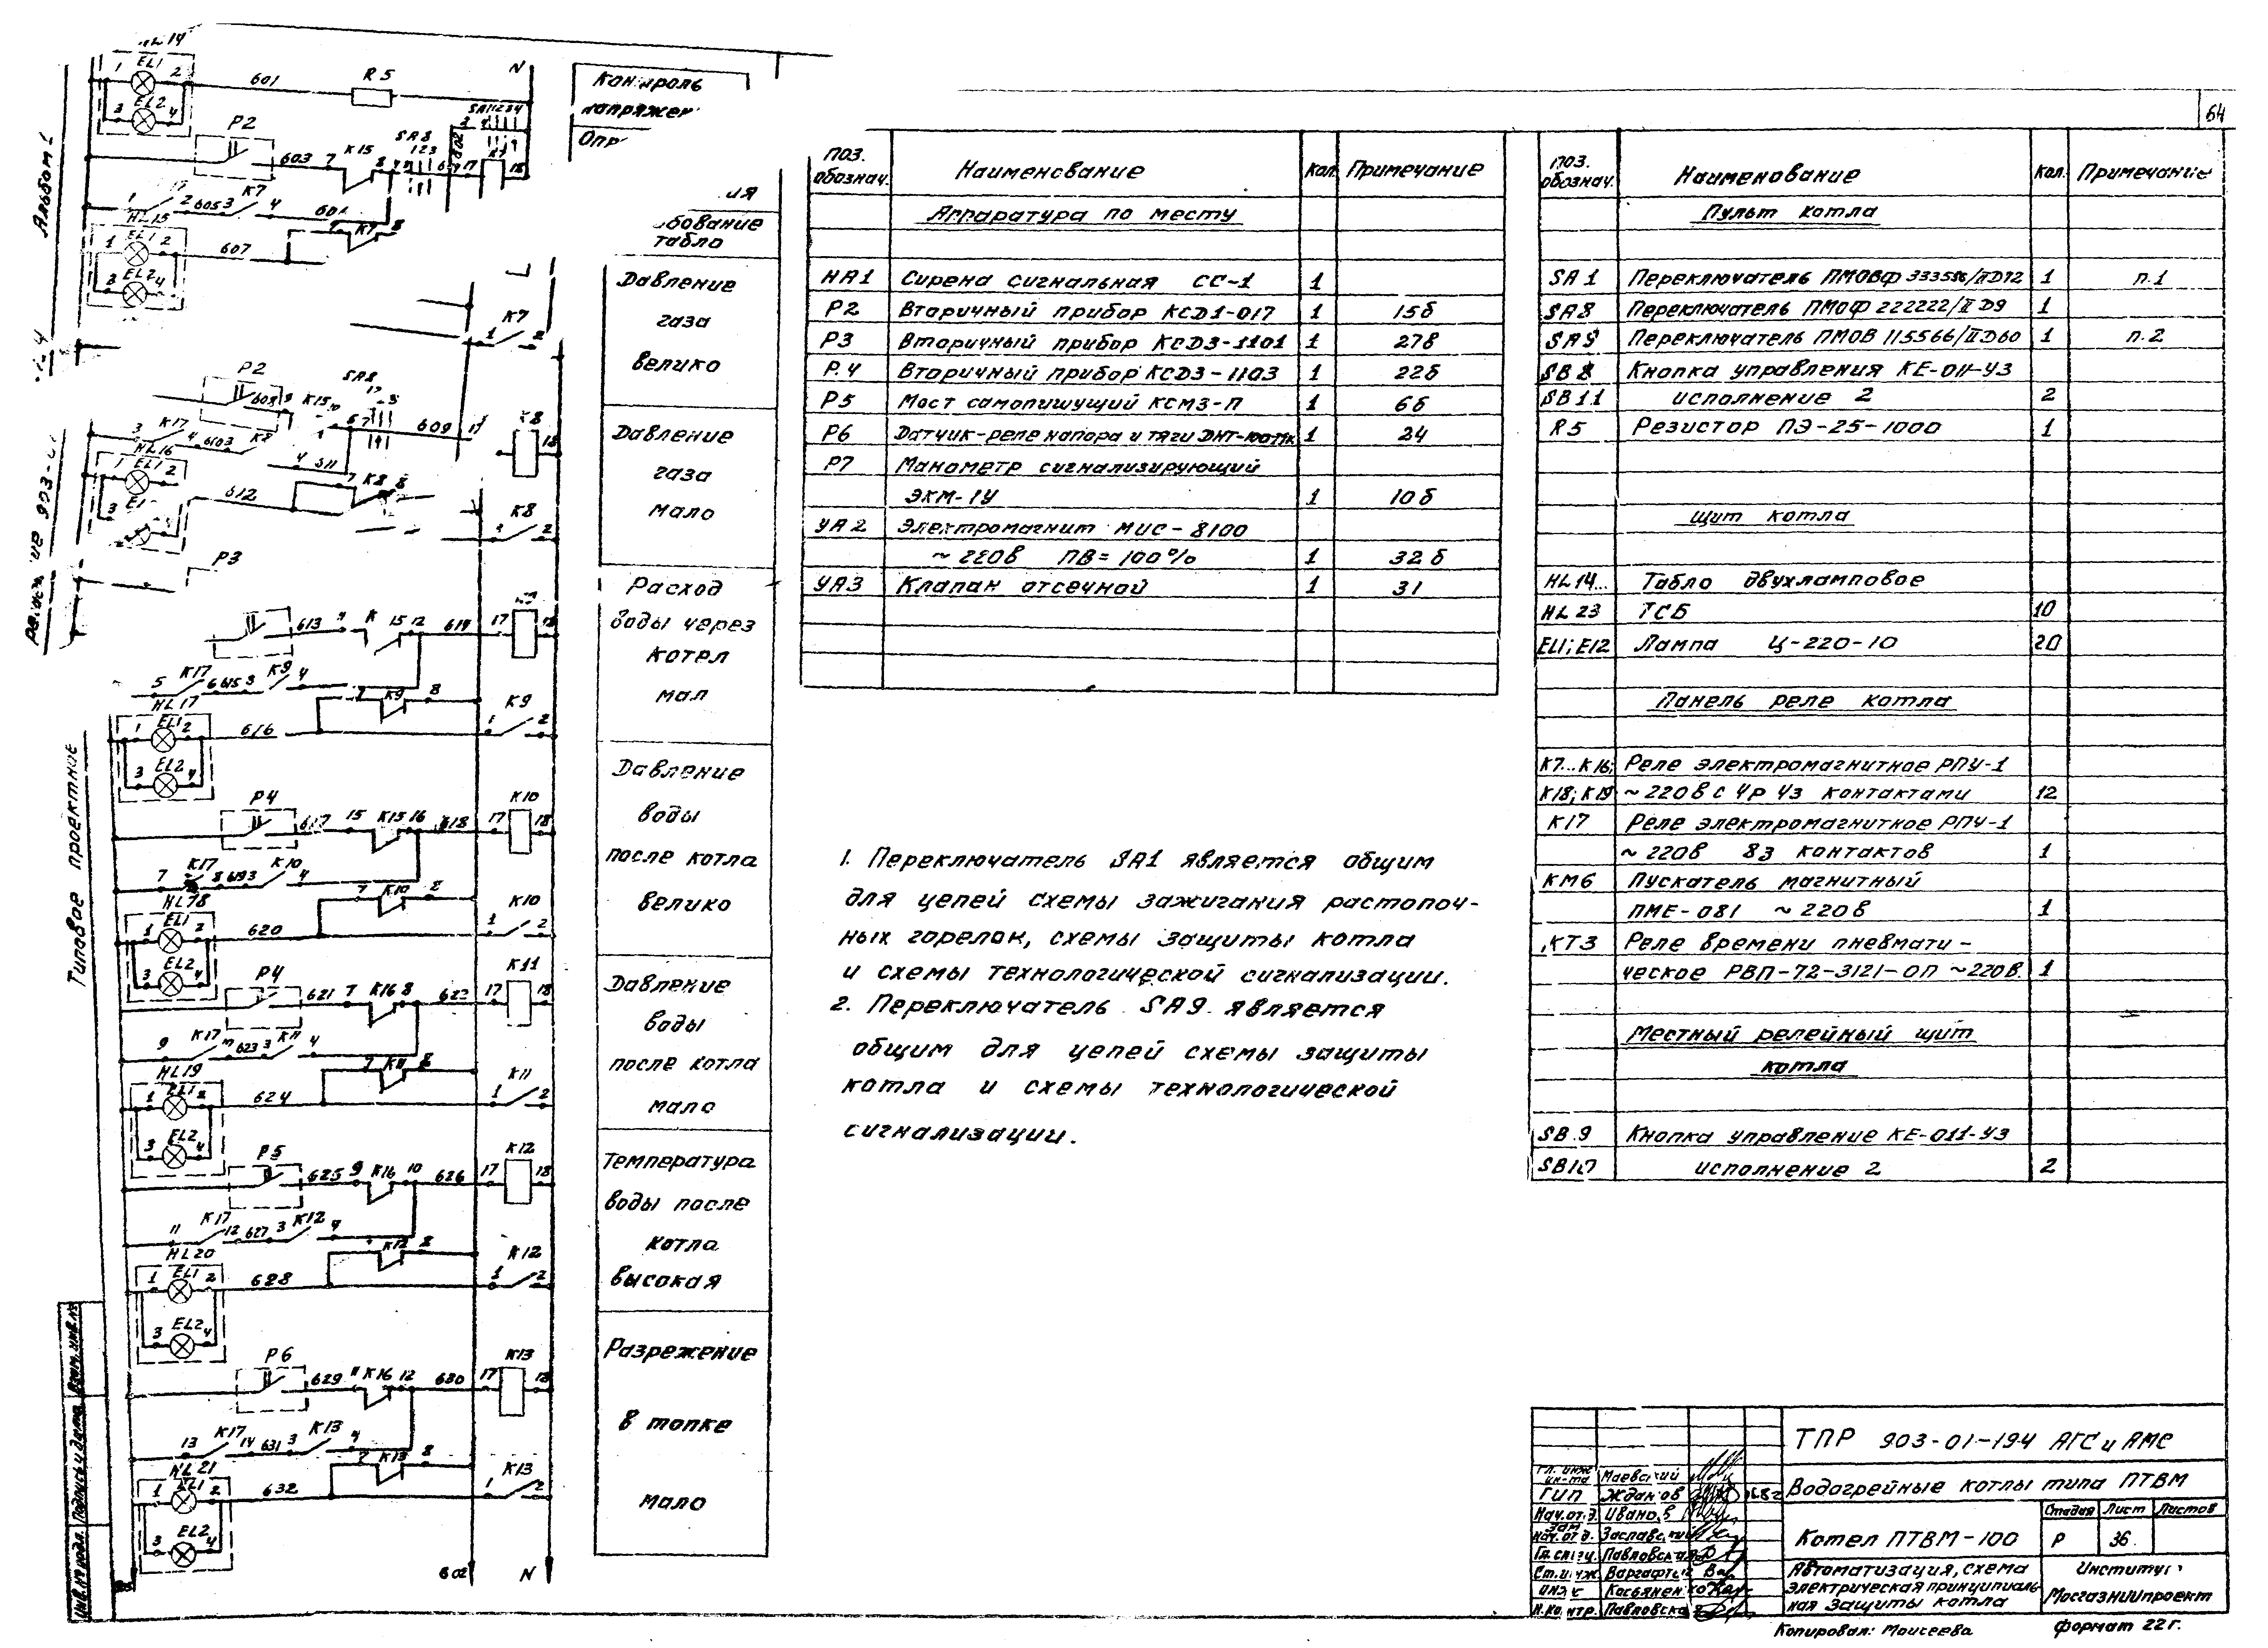 64
Альбом
Типовое проектное
EL1
1 2
EL2
3 4
601
R5
N
P2
603 7 K15 8
SA8
1 2 3
17 18
1 2 605 3 K7 4
HL15
1 EL1 2
607
K7 8
3 EL2 4
K7
1 2
P2
K15
SA8
609
K8
18
3 K17 4
HL16
1 EL1 2
612
7 K8 8
K8
1 2
P3
613
15 12 619 17 18
5 K17 6 615 3 K9 4
HL17
7 K9 8
K9
1 2
1 EL1 2
616
3 EL2 4
P4
617 15 K15 16 618 17 K10 18
7 K17 8 619 3 K10 4
HL78
7 K10 8
K10
1 2
1 EL1 2
620
3 EL2 4
P4
621 7 K16 8 622 17 K11 18
9 K17 623 3 K11 4
HL19
7 K11 8
K11
1 2
1 EL1 2
624
3 EL2 4
P5
625 9 K16 10 626 17 K12 18
11 K17 12 627 3 K12 4
HL20
K12 8
K12
1 2
1 EL1 2
628
3 EL2 4
P6
629 11 K16 12 630 17 K13 18
13 K17 14 631 3 K13 4
HL21
7 K13 8
K13
1 2
1 EL1 2
632
3 EL2 4
602 N
Контроль
Давление
газа
велико
Давление
газа
мало
Расход
воды через
котел
мал
Давление
воды
после котла
велико
Давление
воды
после котла
мало
Температура
воды после
котла
высокая
Разрежение
в топке
мало
поз. обознач. Наименование Кол. Примечание
Аппаратура по месту
НА1 Сирена сигнальная СС-1 1
P2 Вторичный прибор КСД1-017 1 15б
P3 Вторичный прибор КСД3-1101 1 27в
P.4 Вторичный прибор КСД3-1103 1 22б
P5 Мост самопишущий КСМ3-П 1 6б
P6 Датчик-реле напора и тяги ДНТ-100-Мк 1 24
P7 Манометр сигнализирующий
ЭКМ-1У 1 10б
УА2 Электромагнит МИС-8100
~ 220в ПВ=100% 1 32б
УА3 Клапан отсечной 1 31
1. Переключатель SA1 является общим
для цепей схемы зажигания растопоч-
ных горелок, схемы защиты котла
и схемы технологической сигнализации.
2. Переключатель SA9. является
общим для цепей схемы защиты
котла и схемы технологической
сигнализации.
поз. обознач. Наименование Кол. Примечание
Пульт котла
SA1 Переключатель ПМОВФ 1 п.1
SA8 Переключатель ПМОФ 222222/II Д9 1
SA9 Переключатель ПМОВ 115566/II Д60 1 п.2
SB8 Кнопка управления КЕ-011-У3
SB11 исполнение 2 2
R5 Резистор ПЭ-25-1000 1
Щит котла
HL14... Табло двухламповое
HL23 ТСБ 10
EL1; E12 Лампа Ц-220-10 20
Панель реле котла
K7...K16; Реле электромагнитное РПУ-1
K18; K19 ~ 220в с 4р 4з контактами 12
K17 Реле электромагнитное РПУ-1
~ 220в 8з контактов 1
KM6 Пускатель магнитный
ПМЕ-081 ~ 220в 1
KT3 Реле времени пневмати-
ческое РВП-72-3121-ОП ~220в. 1
Местный релейный щит
котла
SB.9 Кнопка управление КЕ-011-У3
SB10 исполнение 2 2
ТПР 903-01-194 АГС и АМС
Водогрейные котлы типа ПТВМ
Котел ПТВМ-100
Стадия Лист Листов
Р 36.
Автоматизация, схема
электрическая принципиаль-
ная защиты котла
Институт
Мосгазниипроект
Гл. инж. ин-та Маевский
ГИП Жданов
Нач.от.д. Иванов
Зам. нач.от.д. Заславский
Гл.спец. Павловская
Ст.инж. Варгафтик
инж. Касьяненко
Н.контр. Павловская
Взам.инв.№
Подпись и дата
Инв.№ подл.
Копировал: Моисеева
формат 22 г.